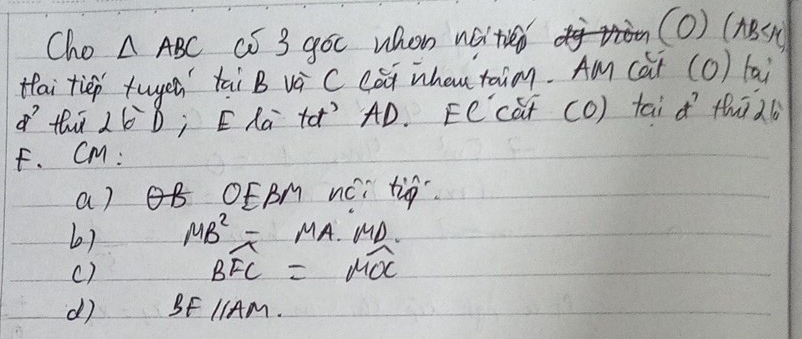 Cho Δ ABC có 3 góc nhọn nội tiếp (O) (AB<AC)
Hai tiếp tuyến tại B và C cắt nhau tại M. AM cắt (O) tại
đ² thứ 2 là D; E là tđ² AD. EC cắt (O) tại đ² thứ 2 là
F. CM:
a) OEBM nội tiếp.
b) MB² = MA. MD.
c) \widehat{BFC} = \widehat{MOC}
d) BF // AM.